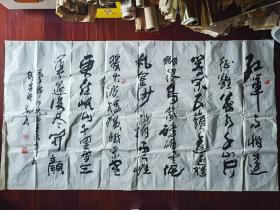 红軍不怕遠
征難萬水千山只
等闲五岭逶迤腾
细浪乌蒙磅礴走泥
丸金沙水拍云崖
暖大渡桥横鐵索寒
更喜岷山千里雪三
軍過後尽开颜